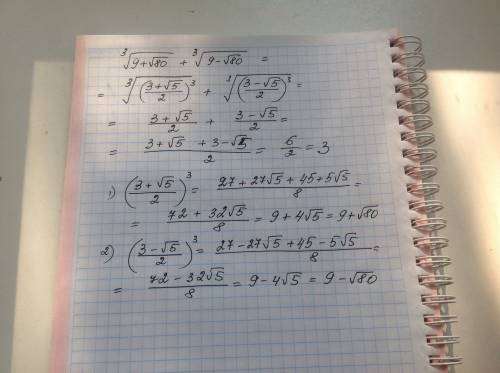 ∛(9+√80) + ∛(9-√80) =
= ∛(((3+√5)/2)³) + ∛(((3-√5)/2)³) =
= (3+√5)/2 + (3-√5)/2 =
= (3+√5 + 3-√5)/2 = 6/2 = 3
1) ((3+√5)/2)³ = (27+27√5+45+5√5)/8 =
= (72+32√5)/8 = 9+4√5 = 9+√80
2) ((3-√5)/2)³ = (27-27√5+45-5√5)/8 =
= (72-32√5)/8 = 9-4√5 = 9-√80